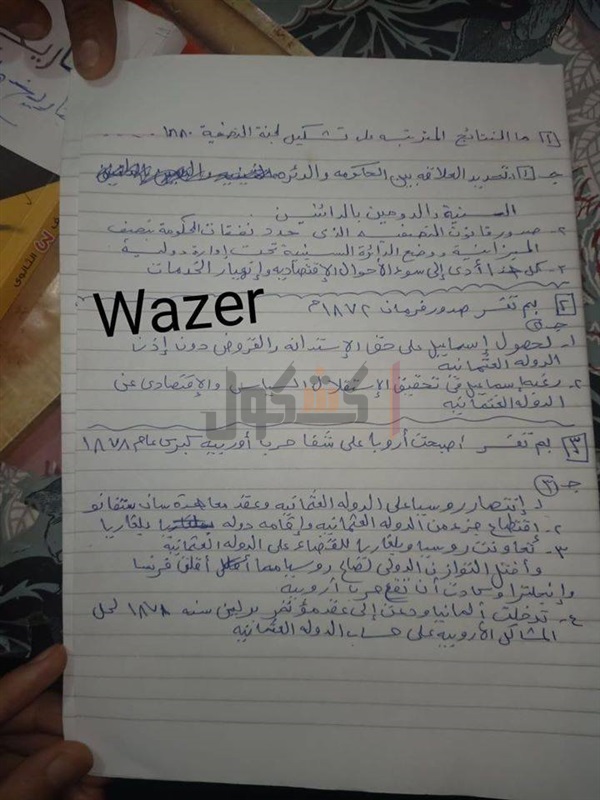 ١ ما النتائج المترتبه على تشكيل لجنة التصفية ١٨٨٠
جـ ١- تحديد العلاقه بين الحكومه والدائره
السنية والدومين بالدائنين
٢- صدور قانون التصفيه الذى حدد نفقات الحكومة بنصف
الميزانية ووضع الدائرة السنية تحت إدارة دولية
٣- كل هذا أدى إلى سوء الأحوال الإقتصاديه وإنهيار الخدمات
Wazer
٢ بم تفسر صدور فرمان ١٨٧٢م
جـ٢
١- لحصول إسماعيل على حق الإستدانه والقروض دون إذن
الدوله العثمانيه
٢- رغبة إسماعيل فى تحقيق الإستقلال السياسى والإقتصادى عن
الدوله العثمانيه
كشكول
٣ بم تفسر اصبحت أروبا على شفا حربا أوربيه كبرى عام ١٨٧٨
جـ ٣
١- إنتصار روسيا على الدوله العثمانيه وعقد معاهدة سان ستفانو
٢- إقتطاع جزء من الدوله العثمانيه وإقامه دوله بلغاريا
٣- تعاونت روسيا وبلغاريا للقضاء على الدوله العثمانية
وأختل التوازن الدولى لصالح روسيا مما أقلق فرنسا
وإنجلترا وكادت أن تقع حربا أروبية
٤- تدخلت ألمانيا ودعت إلى عقد مؤتمر برلين سنه ١٨٧٨ لحل
المشاكل الأروبية على حساب الدوله العثمانيه